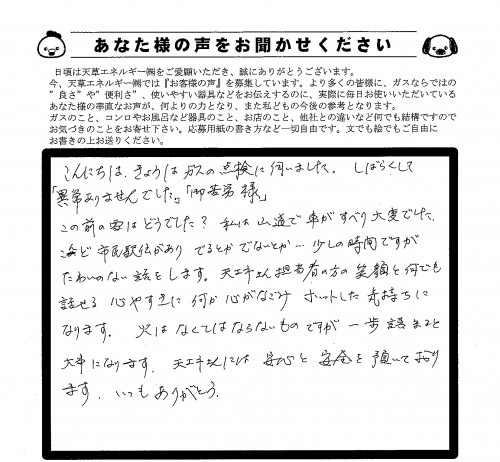 あなた様の声をお聞かせください
日頃は天草エネルギー㈱をご愛顧いただき、誠にありがとうございます。
今、天草エネルギー㈱では『お客様の声』を募集しています。より多くの皆様に、ガスならではの
”良さ”や”便利さ”、使いやすい器具などをお伝えするのに、実際に毎日お使いいただいている
あなた様の率直なお声が、何よりの力となり、また私どもの今後の参考となります。
ガスのこと、コンロやお風呂など器具のこと、お店のこと、他社との違いなど何でも結構ですので
お気づきのことをお寄せ下さい。応募用紙の書き方など一切自由です。文でも絵でもご自由に
お書きの上お送りください。
こんにちは、きょうはガスの点検に伺いました。しばらくして
「異常ありませんでした。」「御苦労様。」
この前の雪はどうでした？私は山道で車がすべり大変でした、
市民駅伝があり でるとかでないとか…少しの時間ですが
たわいのない話をします。天エネさん担当者の方の笑顔と何でも
話せる 心やすさに 何か心がなごみ ホットした気持ちに
なります。火はなくてはならないものですが 一歩 まると
大事になります。天エネさんには 安心と安全を頂いており
ます。いつもありがとう。